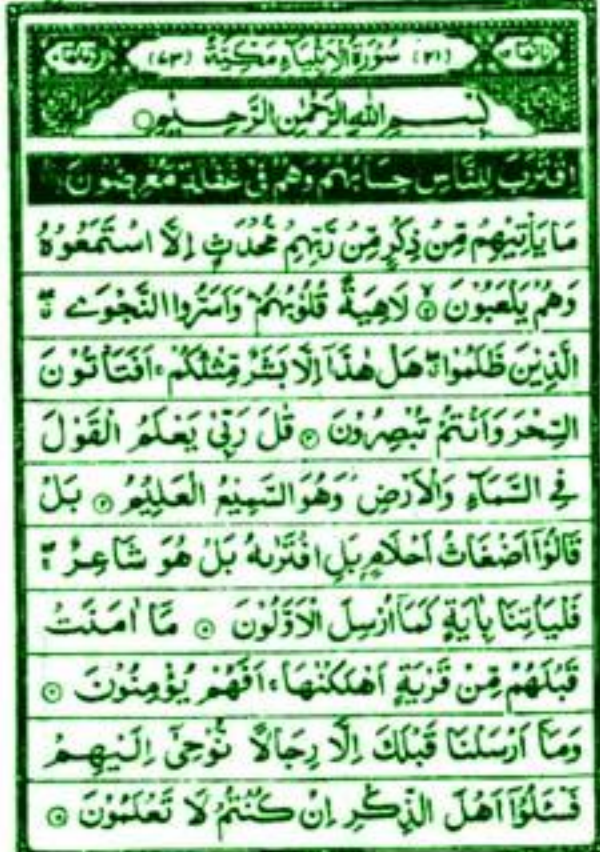 (٢١) سُوْرَةُ الْاَنْبِيَآءِ مَكِّيَّةٌ (٧٣)
بِسْمِ اللهِ الرَّحْمٰنِ الرَّحِيْمِ
اِقْتَرَبَ لِلنَّاسِ حِسَابُهُمْ وَهُمْ فِيْ غَفْلَةٍ مُّعْرِضُوْنَ
مَا يَاْتِيْهِمْ مِّنْ ذِكْرٍ مِّنْ رَّبِّهِمْ مُّحْدَثٍ اِلَّا اسْتَمَعُوْهُ
وَهُمْ يَلْعَبُوْنَ ۝٢ لَاهِيَةً قُلُوْبُهُمْ وَاَسَرُّوا النَّجْوَى
الَّذِيْنَ ظَلَمُوْا هَلْ هٰذَآ اِلَّا بَشَرٌ مِّثْلُكُمْ اَفَتَاْتُوْنَ
السِّحْرَ وَاَنْتُمْ تُبْصِرُوْنَ ۝٣ قٰلَ رَبِّيْ يَعْلَمُ الْقَوْلَ
فِي السَّمَآءِ وَالْاَرْضِ وَهُوَ السَّمِيْعُ الْعَلِيْمُ ۝٤ بَلْ
قَالُوْٓا اَضْغَاثُ اَحْلَامٍ بَلِ افْتَرٰىهُ بَلْ هُوَ شَاعِرٌ
فَلْيَاْتِنَا بِاٰيَةٍ كَمَآ اُرْسِلَ الْاَوَّلُوْنَ ۝٥ مَآ اٰمَنَتْ
قَبْلَهُمْ مِّنْ قَرْيَةٍ اَهْلَكْنٰهَا اَفَهُمْ يُؤْمِنُوْنَ ۝٦
وَمَآ اَرْسَلْنَا قَبْلَكَ اِلَّا رِجَالًا نُّوْحِيْٓ اِلَيْهِمْ
فَسْـَٔلُوْٓا اَهْلَ الذِّكْرِ اِنْ كُنْتُمْ لَا تَعْلَمُوْنَ ۝٧